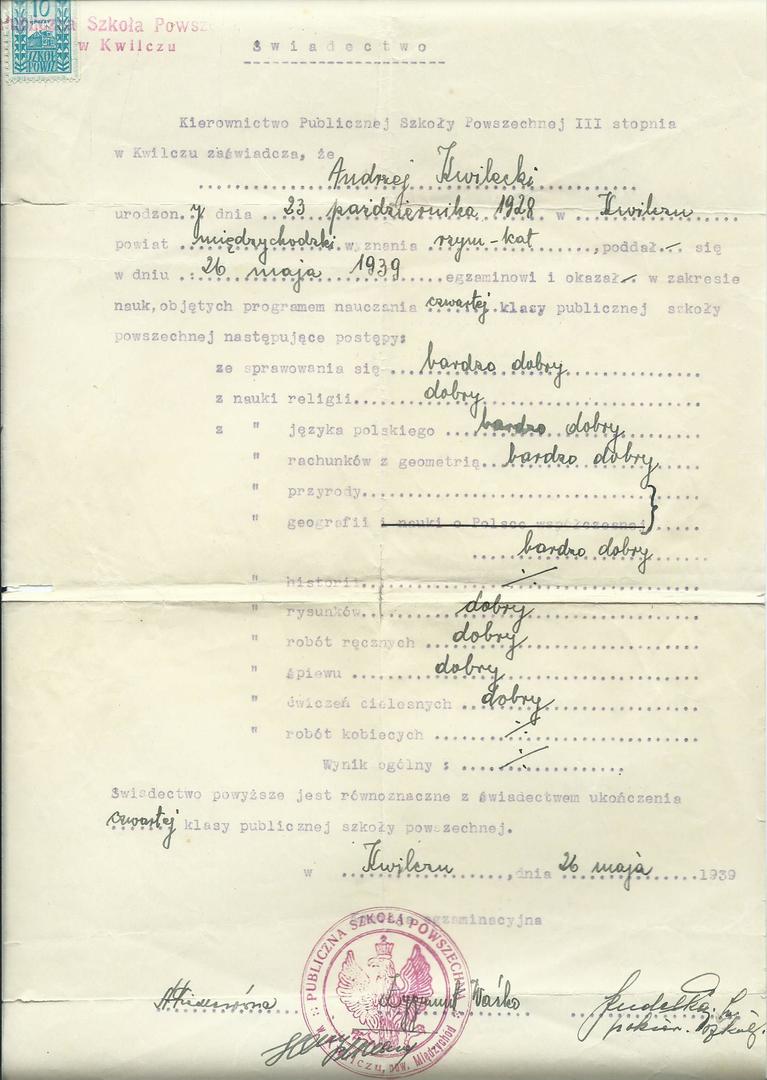 10
SZKÓŁ
POWSZ
Szkoła Powsz
w Kwilczu
Świadectwo
Kierownictwo Publicznej Szkoły Powszechnej III stopnia
w Kwilczu zaświadcza, że
Andrzej Kwilecki
urodzon.y dnia 23 października 1928 w Kwilczu
powiat międzychodzki wyznania rzym-kat , poddał się
w dniu 26 maja 1939 egzaminowi i okazał w zakresie
nauk, objętych programem nauczania czwartej klasy publicznej szkoły
powszechnej następujące postępy:
ze sprawowania się bardzo dobry
z nauki religii dobry
z " języka polskiego bardzo dobry
" rachunków z geometrią bardzo dobry
" przyrody
" geografii i nauki o Polsce współczesnej
bardzo dobry
" historii ·/·
" rysunków dobry
" robót ręcznych dobry
" śpiewu dobry
" ćwiczeń cielesnych dobry
" robót kobiecych ·/·
Wynik ogólny : ·/·
Świadectwo powyższe jest równoznaczne z świadectwem ukończenia
czwartej klasy publicznej szkoły powszechnej.
w Kwilczu , dnia 26 maja 1939
egzaminacyjna
PUBLICZNA SZKOŁA POWSZECHNA
w Kwilczu, pow. Międzychód
Zygmunt Waśko